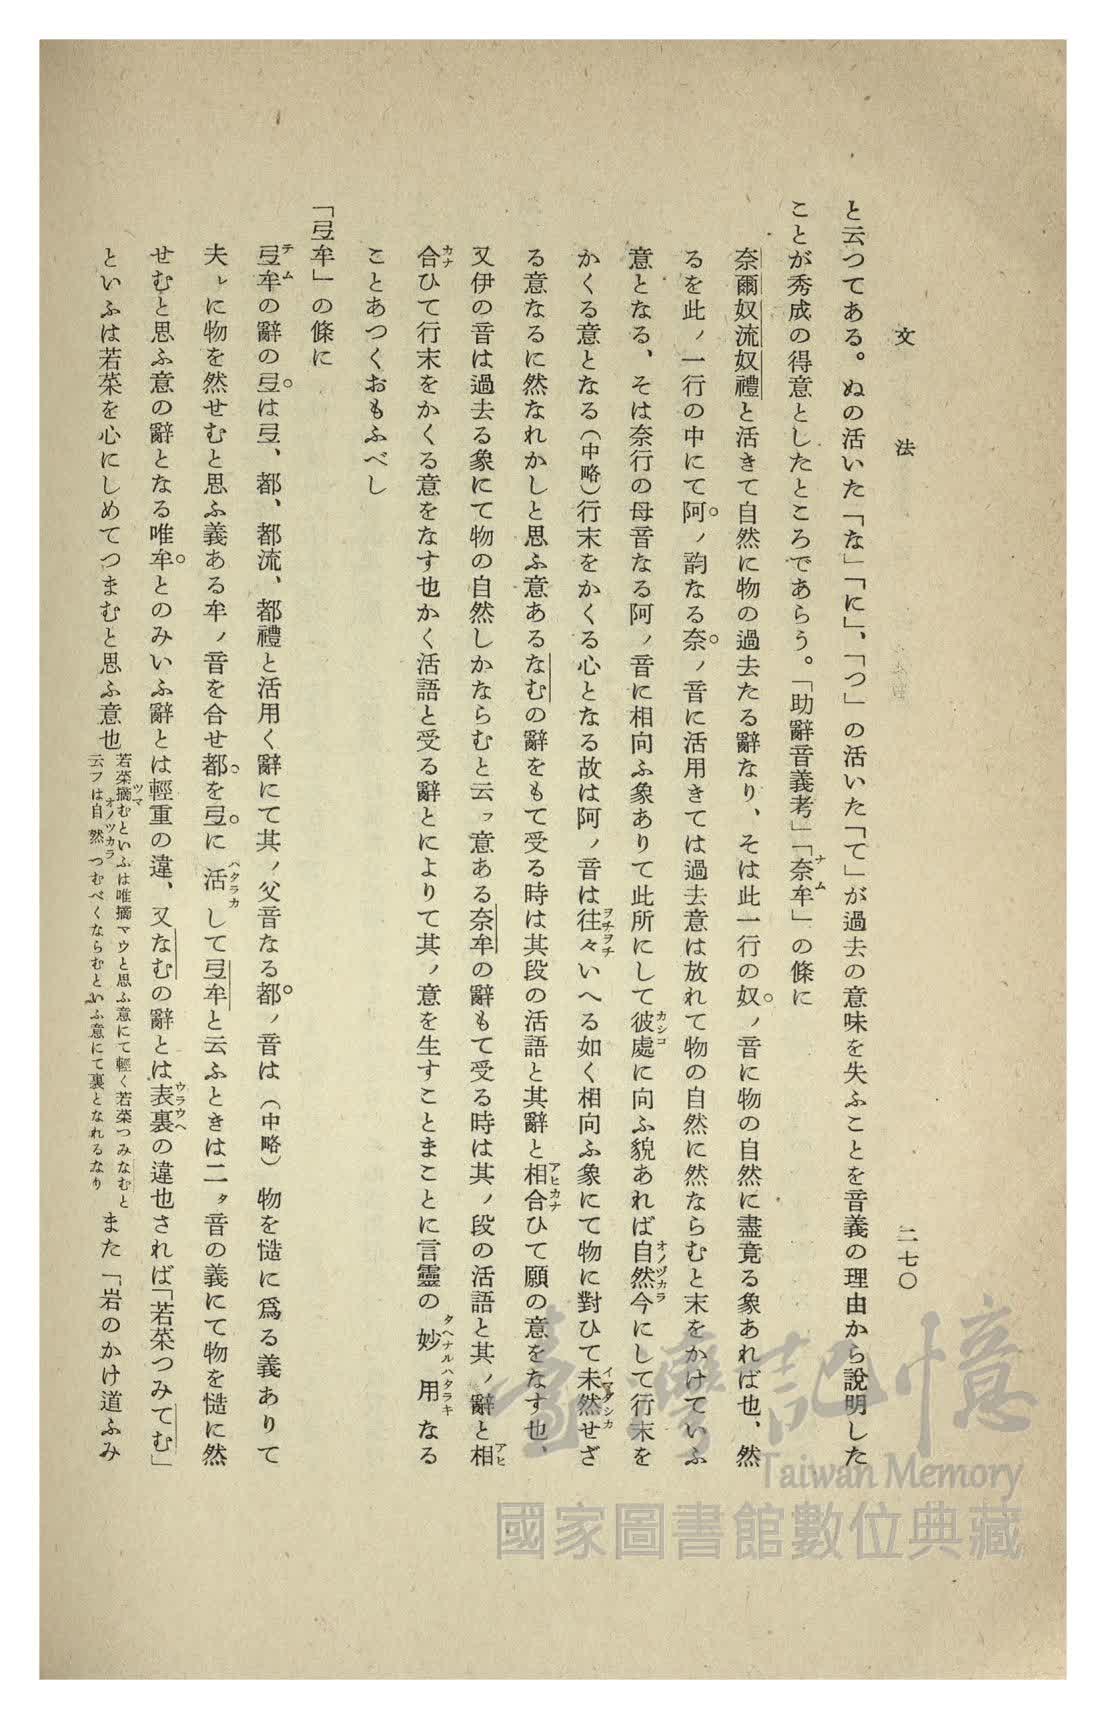 文法
二七〇
と云つてある。ぬの活いた「な」「に」、「つ」の活いた「て」が過去の意味を失ふことを音義の理由から說明した
ことが秀成の得意としたところであらう。「助辭音義考」「奈牟」の條に
奈爾奴流奴禮と活きて自然に物の過去たる辭なり、そは此一行の奴ノ音に物の自然に盡竟る象あれば也、然
るを此ノ一行の中にて阿ノ韵なる奈ノ音に活用きては過去意は放れて物の自然に然ならむと末をかけていふ
意となる、そは奈行の母音なる阿ノ音に相向ふ象ありて此所にして彼處に向ふ貌あれば自然今にして行末を
かくる意となる（中略）行末をかくる心となる故は阿ノ音は往々いへる如く相向ふ象にて物に對ひて未然せざ
る意なるに然なれかしと思ふ意あるなむの辭をもて受る時は其段の活語と其辭と相合ひて願の意をなす也、
又伊の音は過去る象にて物の自然しかならむと云フ意ある奈牟の辭もて受る時は其ノ段の活語と其ノ辭と相
合ひて行末をかくる意をなす也かく活語と受る辭とによりて其ノ意を生すことまことに言靈の妙用なる
ことあつくおもふべし
「弖牟」の條に
弖牟の辭の弖は弖、都、都流、都禮と活用く辭にて其ノ父音なる都ノ音は（中略）物を慥に爲る義ありて
夫レに物を然せむと思ふ義ある牟ノ音を合せ都を弖に活して弖牟と云ふときは二タ音の義にて物を慥に然
せむと思ふ意の辭となる唯牟とのみいふ辭とは輕重の違、又なむの辭とは表裏の違也されば「若菜つみてむ」
といふは若菜を心にしめてつまむと思ふ意也
若菜摘むといふは唯摘マウと思ふ意にて輕く若菜つみなむと
云フは自然つむべくならむといふ意にて裏となれるなり
また「岩のかけ道ふみ
臺灣記憶
Taiwan Memory
國家圖書館數位典藏